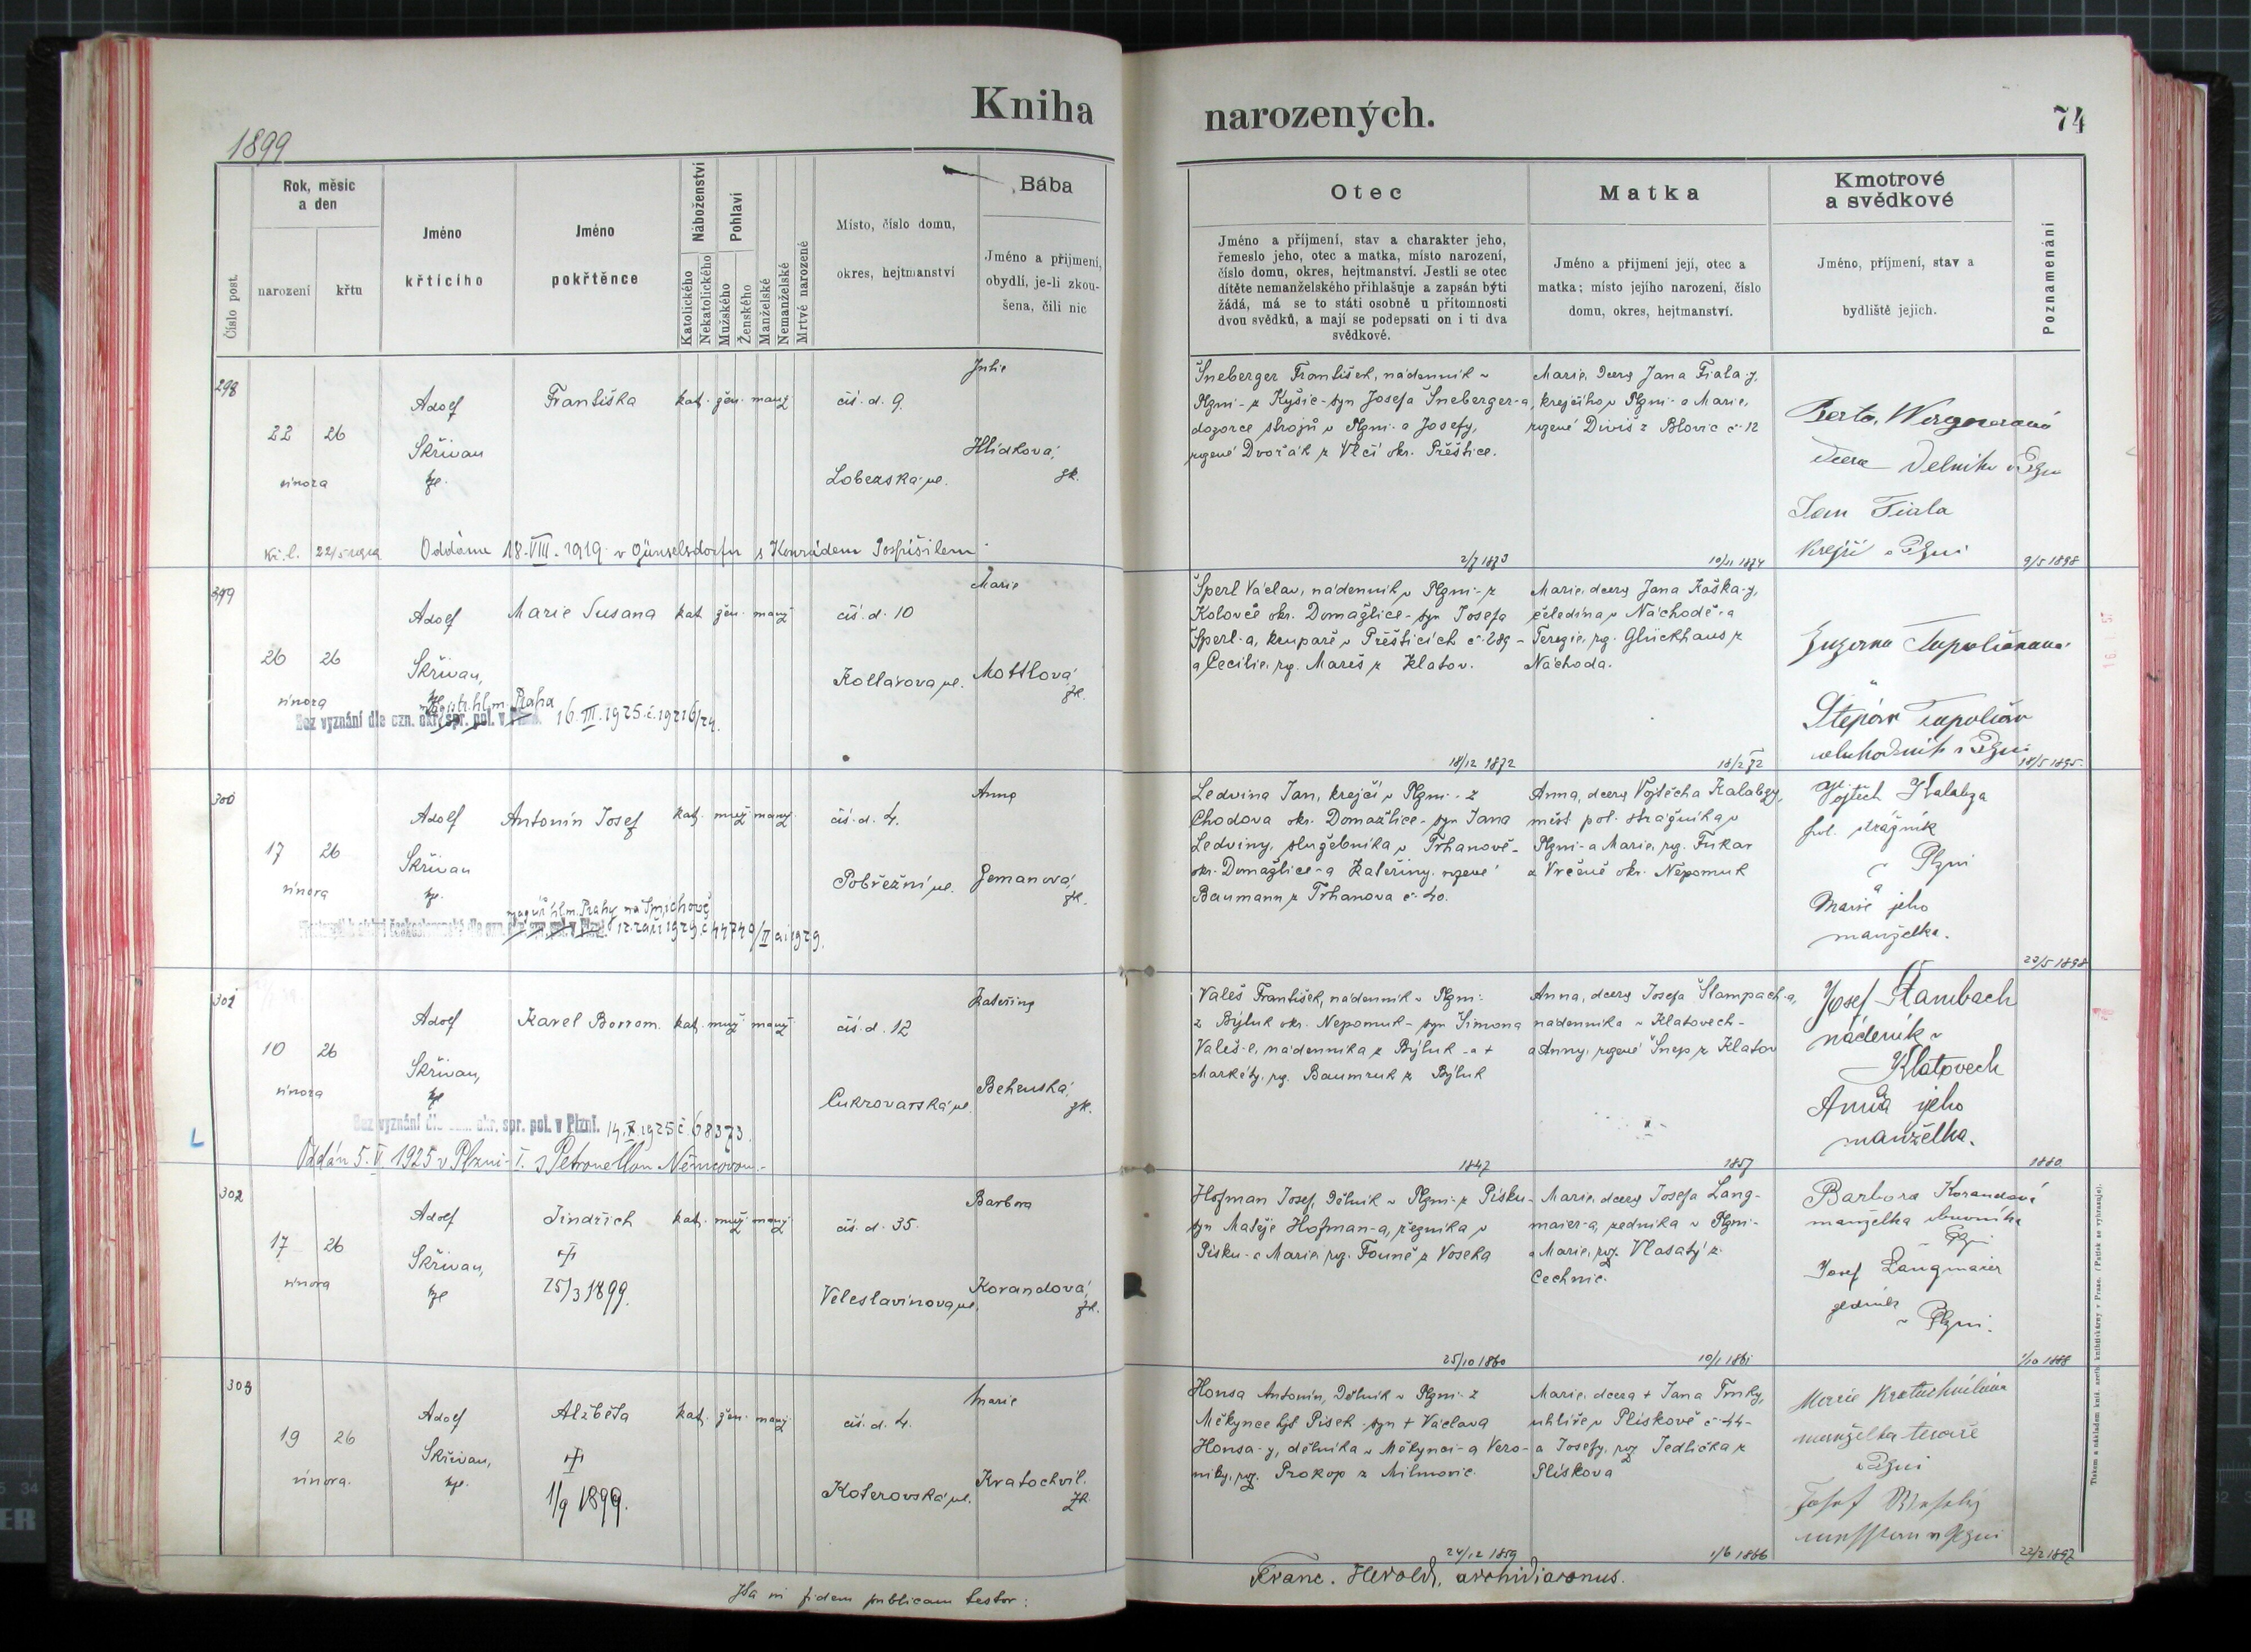 Kniha
narozených.
74
1899
Číslo post.
Rok, měsíc
a den
narození
křtu
Jméno
křtícího
Jméno
pokřtěnce
Náboženství
Katolického
Nekatolického
Pohlaví
Mužského
Ženského
Manželské
Nemanželské
Mrtvě narozené
Místo, číslo domu,
okres, hejtmanství
Bába
Jméno a příjmení,
obydlí, je-li zkou-
šena, čili nic
Otec
Jméno a příjmení, stav a charakter jeho,
řemeslo jeho, otec a matka, místo narození,
číslo domu, okres, hejtmanství. Jestli se otec
dítěte nemanželského přihlašuje a zapsán býti
žádá, má se to státi osobně u přítomnosti
dvou svědků, a mají se podepsati on i ti dva
svědkové.
Matka
Jméno a přijmení její, otec a
matka; místo jejího narození, číslo
domu, okres, hejtmanství.
Kmotrové
a svědkové
Jméno, příjmení, stav a
bydliště jejich.
Poznamenání
298
22 26
února
Adolf
Skřivan
Františka
kat. žen. manž
čís. d. 9.
Lobezská ul.
Julie
Hlídková,
zk.
Šneberger František, nádenník v
Plzni - z Kyšic - syn Josefa Šneberger-a,
dozorce strojů v Plzni - a Josefy,
rozené Dvořák z Vlčí okr. Přeštice.
2/7 1873
Marie, dcera Jana Fiala-y,
krejčího v Plzni - a Marie,
rozené Diviš z Blovic č. 12
10/11 1874
dcera dělníka v Plzni
Jan Fiala
krejčí v Plzni
9/5 1898
Oddána 18. VIII. 1919 v Günselsdorfu s Konrádem Pospíšilem
299
26 26
února
Adolf
Skřivan,
Marie Susana
kat. žen. manž
čís. d. 10
Kollárova ul.
Marie
Mottlová,
zk.
Šperl Václav, nádenník v Plzni - z
Koloveč okr. Domažlice - syn Josefa
Šperl-a, krupaře v Přešticích č. 289 -
a Cecilie, roz. Mareš z Klatov.
18/12 1872
Marie, dcera Jana Kaška-y,
čeledína v Náchodě - a
Terezie, rz. Glückhaus z
Náchoda.
18/2 72
18/5 1895
Bez vyznání dle ozn. okr. spr. pol. v Plzni.
magistr. hl. m. Praha
16. III. 1925. č. 19216/24.
300
17 26
února
Adolf
Skřivan
Antonín Josef
kat. muž manž.
čís. d. 4.
Pobřežní ul.
Anna
Zemanová,
zk.
Ledvina Jan, krejčí v Plzni - z
Chodova okr. Domažlice - syn Jana
Ledviny, služebníka v Trhanově -
okr. Domažlice - a Kateřiny, rozené
Baumann z Trhanova č. 40.
Anna, dcera Vojtěcha Kalabzy,
měst. pol. strážníka v
Plzni - a Marie, rz. Fukar
z Vrčeně okr. Nepomuk
Vojtěch Kalabza
pol. strážník
v Plzni
a
Marie jeho
manželka.
23/5 1898
magistr. hl. m. Prahy na Smíchově
12. září 1929.
301
10 26
února
Adolf
Skřivan,
Karel Borrom.
kat. muž manž
čís. d. 12
Cukrovarská ul.
Kateřina
Behenská,
zk.
Valeš František, nádenník v Plzni:
z Býluk okr. Nepomuk - syn Šimona
Valeš-e, nádenníka z Býluk - a +
Markéty, rz. Baumruk z Býluk
1847
Anna, dcera Josefa Štampach-a,
nádenníka v Klatovech -
a Anny, rozené Šnep z Klatov
1857
Josef Štambach
nádeník v
Klatovech
a
Anna jeho
manželka.
1880
Bez vyznání dle ozn. okr. spr. pol. v Plzni. 14. X. 1925 č. 68373.
Oddán 5. VI 1925 v Plzni-I. s Petronellou Němcovou.-
302
17 26
února
Adolf
Skřivan,
Jindřich
25/3 1899.
kat. muž manž
čís. d. 35.
Veleslavínova ul.
Barbora
Korandová,
zk.
Hofman Josef, dělník v Plzni - z Písku -
syn Matěje Hofman-a, řezníka v
Písku - a Marie, roz. Founě z Voseka
25/10 1860
Marie, dcera Josefa Lang-
maier-a, zedníka v Plzni -
a Marie, roz. Vlasatý z
Čechnic.
10/1 1861
Barbora Korandová
manželka obuvníka
v Plzni
Josef Langmaier
zedník
v Plzni.
1/10 1888
303
19 26
února.
Adolf
Skřivan,
Alžběta
1/9 1899.
kat. žen. manž.
čís. d. 4.
Koterovská ul.
Marie
Kratochvil.
zk.
Honsa Antonín, dělník v Plzni - z
Měkynce byt Písek - syn + Václava
Honsa-y, dělníka v Měkynci - a Vero-
niky, roz. Prokop z Milenovic.
24/12 1859
Marie, dcera + Jana Trnky,
uhlíře v Plískově č. 44 -
a Josefy, roz Jedlička z
Plískova
1/6 1866
Marie Kratochvílová
manželka
v Plzni
Josef Veselý
22/2 1897
Ita in fidem publicam testor:
Franc. Herold, archidiaconus.
Tiskem a nákladem kníž. arcib. knihtiskárny v Praze. (Patisk se vyhrazuje).